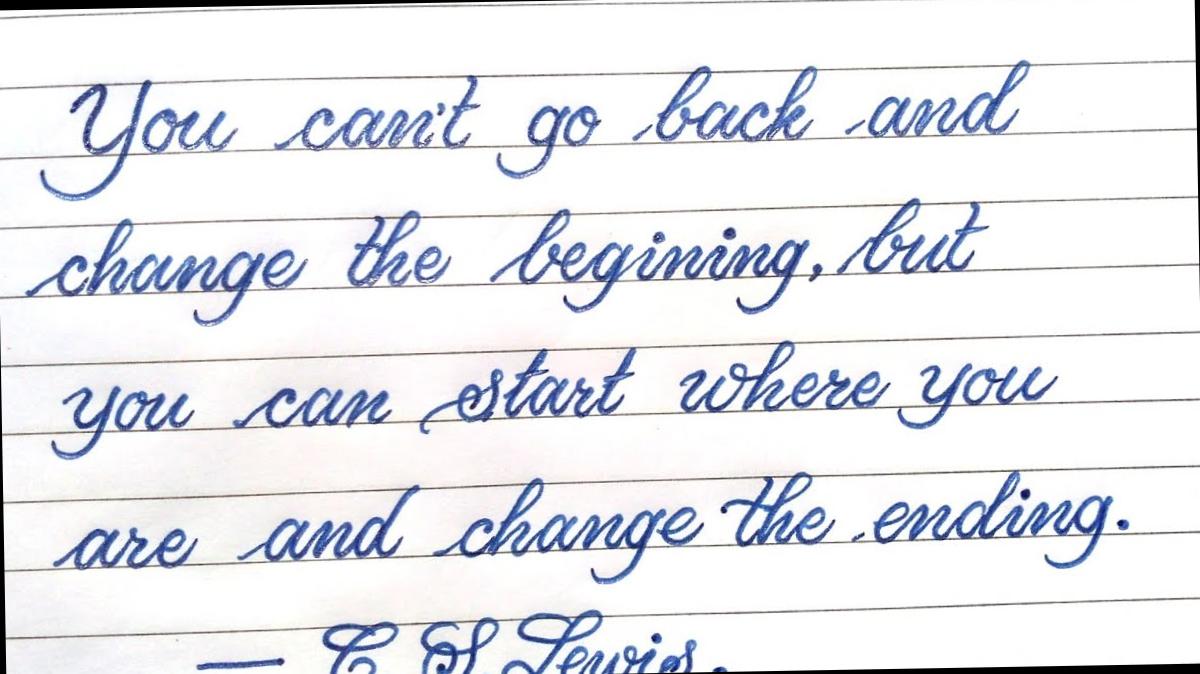 You can't go back and
change the begining, but
you can start where you
are and change the ending.
— C S Lewis.